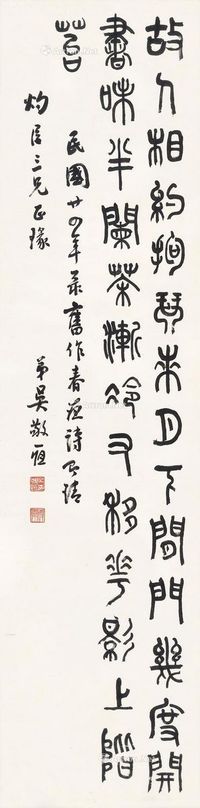 故人相約抱琴來月下閒門幾度開
書味半闌茶漸冷又移花影上階
苔
民國廿四年錄舊作春夜詩即請
灼居三兄正瑑
弟吳敬恆